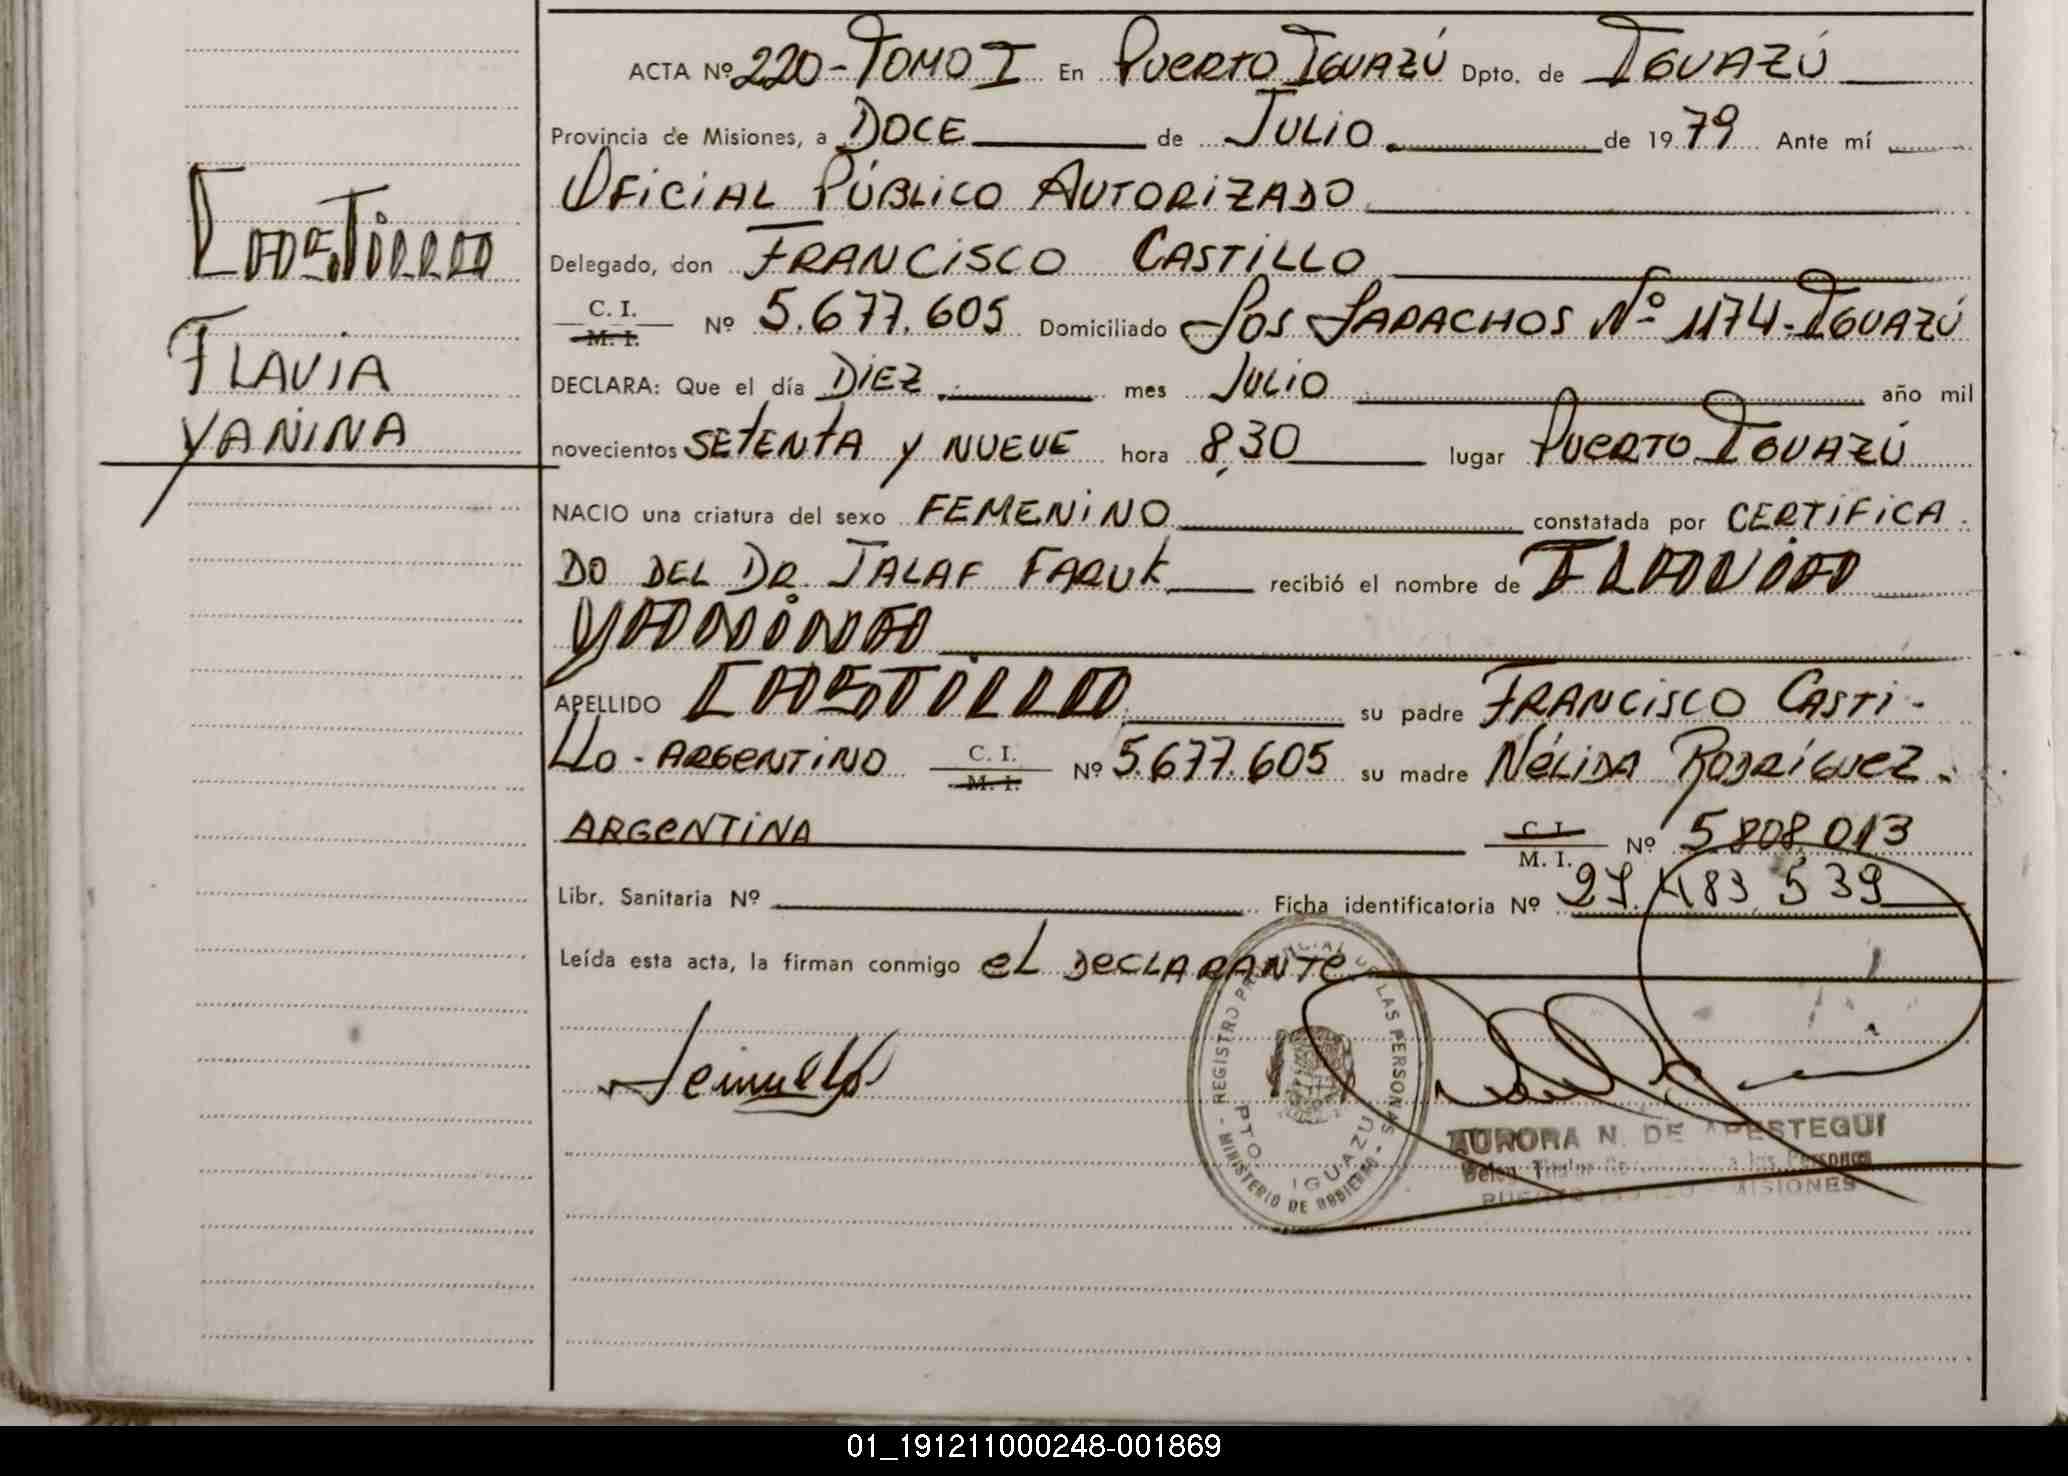 ACTA Nº 220-TOMO I En PUERTO IGUAZÚ Dpto. de IGUAZÚ
Provincia de Misiones, a DOCE de JULIO de 1979 Ante mí
OFICIAL PÚBLICO AUTORIZADO
Delegado, don FRANCISCO CASTILLO
C. I.
M. I.
Nº 5.677.605 Domiciliado LOS LAPACHOS Nº 1174-IGUAZÚ
DECLARA: Que el día DIEZ mes JULIO año mil
novecientos SETENTA y NUEVE hora 8,30 lugar PUERTO IGUAZÚ
NACIO una criatura del sexo FEMENINO constatada por CERTIFICA
DO DEL DR. JALAF FARUK recibió el nombre de FLAVIA
YANINA
APELLIDO CASTILLO su padre FRANCISCO CASTI-
LLO-ARGENTINO C. I.
M. I.
Nº 5.677.605 su madre NÉLIDA RODRÍGUEZ-
ARGENTINA C. I.
M. I.
Nº 5.808.013
Libr. Sanitaria Nº Ficha identificatoria Nº 27.483.539
Leída esta acta, la firman conmigo EL DECLARANTE
CASTILLO
FLAVIA
YANINA
REGISTRO PROVINCIAL DE LAS PERSONAS - MINISTERIO DE GOBIERNO -
PTO. IGUAZU
AURORA N. DE APESTEGUI
MISIONES
01_191211000248-001869